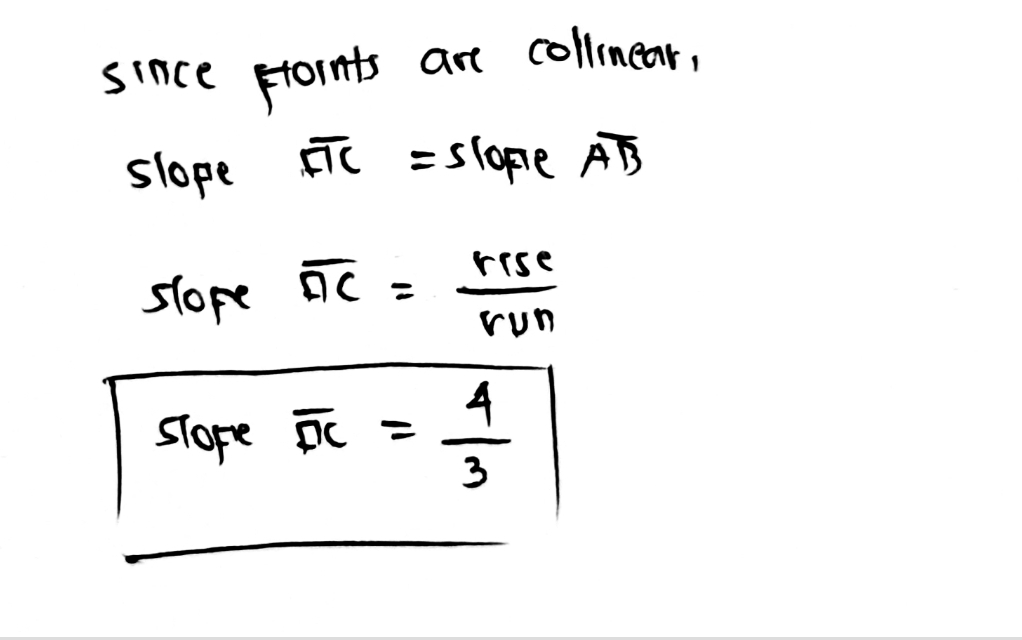 since points are collinear,
slope AC = slope AB
slope AC = rise
run
slope AC = 4
3